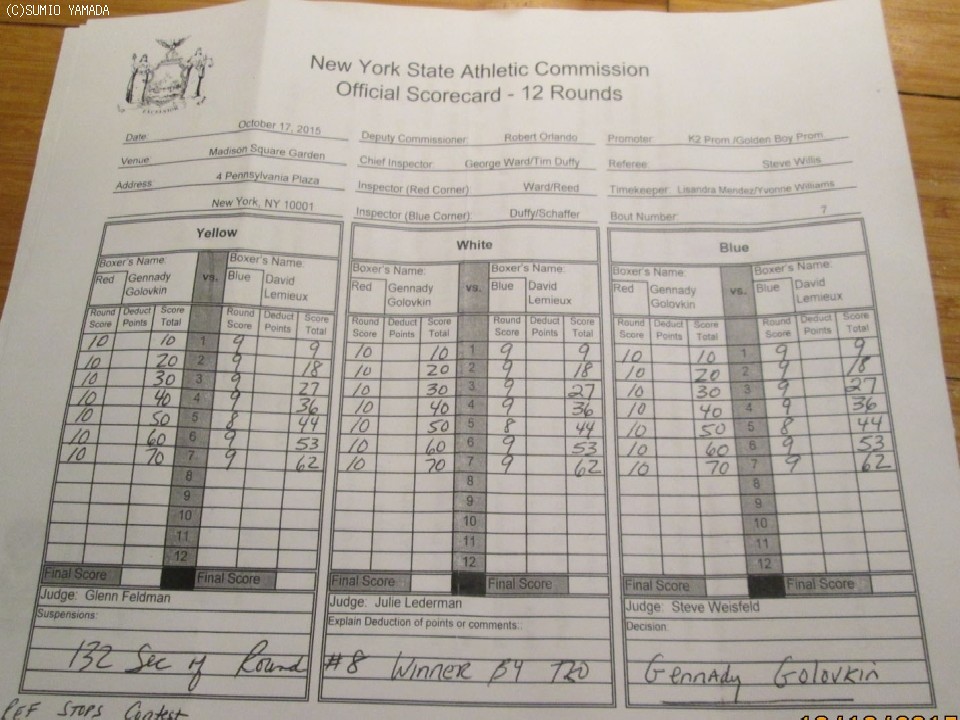 (C)SUMIO YAMADA
EXCELSIOR
New York State Athletic Commission
Official Scorecard - 12 Rounds
Date: October 17, 2015 Deputy Commissioner: Robert Orlando Promoter: K2 Prom /Golden Boy Prom
Venue Madison Square Garden Chief Inspector: George Ward/Tim Duffy Referee: Steve Willis
Address: 4 Pennsylvania Plaza Inspector (Red Corner) Ward/Reed Timekeeper: Lisandra Mendez/Yvonne Williams
New York, NY 10001 Inspector (Blue Corner): Duffy/Schaffer Bout Number: 7
Yellow White Blue
Boxer's Name: vs. Boxer's Name: Boxer's Name: vs. Boxer's Name: Boxer's Name: vs. Boxer's Name:
Red Gennady Blue David Red Gennady Blue David Red Gennady Blue David
Golovkin Lemieux Golovkin Lemieux Golovkin Lemieux
Round Deduct Score Round Deduct Score Round Deduct Score Round Deduct Score Round Deduct Score Round Deduct Score
Score Points Total Score Points Total Score Points Total Score Points Total Score Points Total Score Points Total
10 10 1 9 9 10 10 1 9 9 10 10 1 9 9
10 20 2 9 18 10 20 2 9 18 10 20 2 9 18
10 30 3 9 27 10 30 3 9 27 10 30 3 9 27
10 40 4 9 36 10 40 4 9 36 10 40 4 9 36
10 50 5 8 44 10 50 5 8 44 10 50 5 8 44
10 60 6 9 53 10 60 6 9 53 10 60 6 9 53
10 70 7 9 62 10 70 7 9 62 10 70 7 9 62
8 8 8
9 9 9
10 10 10
11 11 11
12 12 12
Final Score Final Score Final Score Final Score Final Score Final Score
Judge: Glenn Feldman Judge: Julie Lederman Judge: Steve Weisfeld
Suspensions: Explain Deduction of points or comments.: Decision:
132 Sec of Round #8 WINNER BY TKO GennAdy Golovkin
REF STOPS Contest